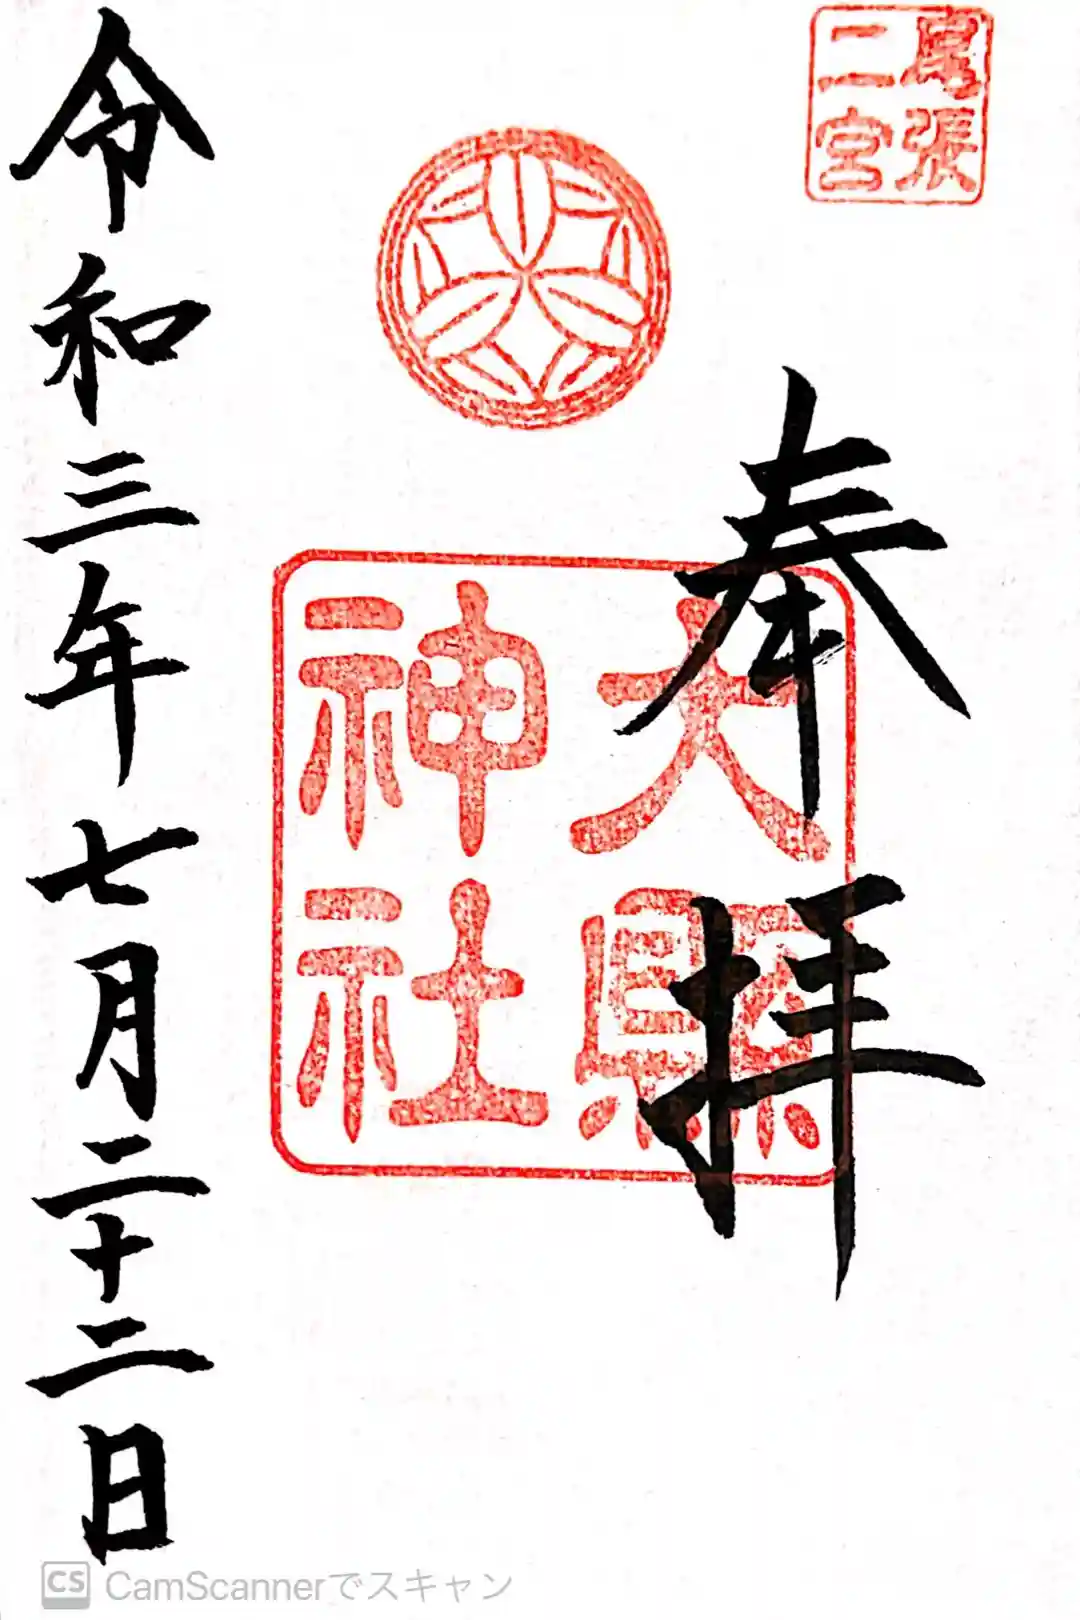 尾張
二宮
奉拝
大縣
神社
令和三年七月二十二日
CS CamScannerでスキャン